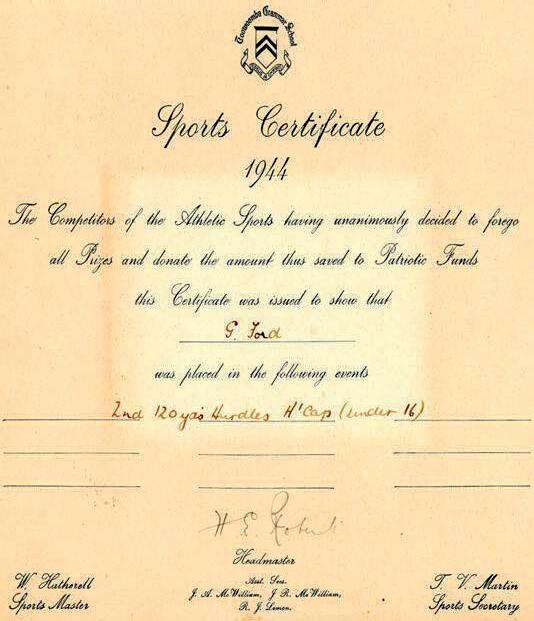 Toowoomba Grammar School
Sports Certificate
1944
The Competitors of the Athletic Sports having unanimously decided to forego
all Prizes and donate the amount thus saved to Patriotic Funds
this Certificate was issued to show that
G. Ford
was placed in the following events
2nd 120 yds Hurdles H'Cap (under 16)
H E Roberts
Headmaster
W. Hatherell
Sports Master
Asst. Secs.
J. A. McWilliam, J. R. McWilliam,
R. J. Limon.
T. V. Martin
Sports Secretary